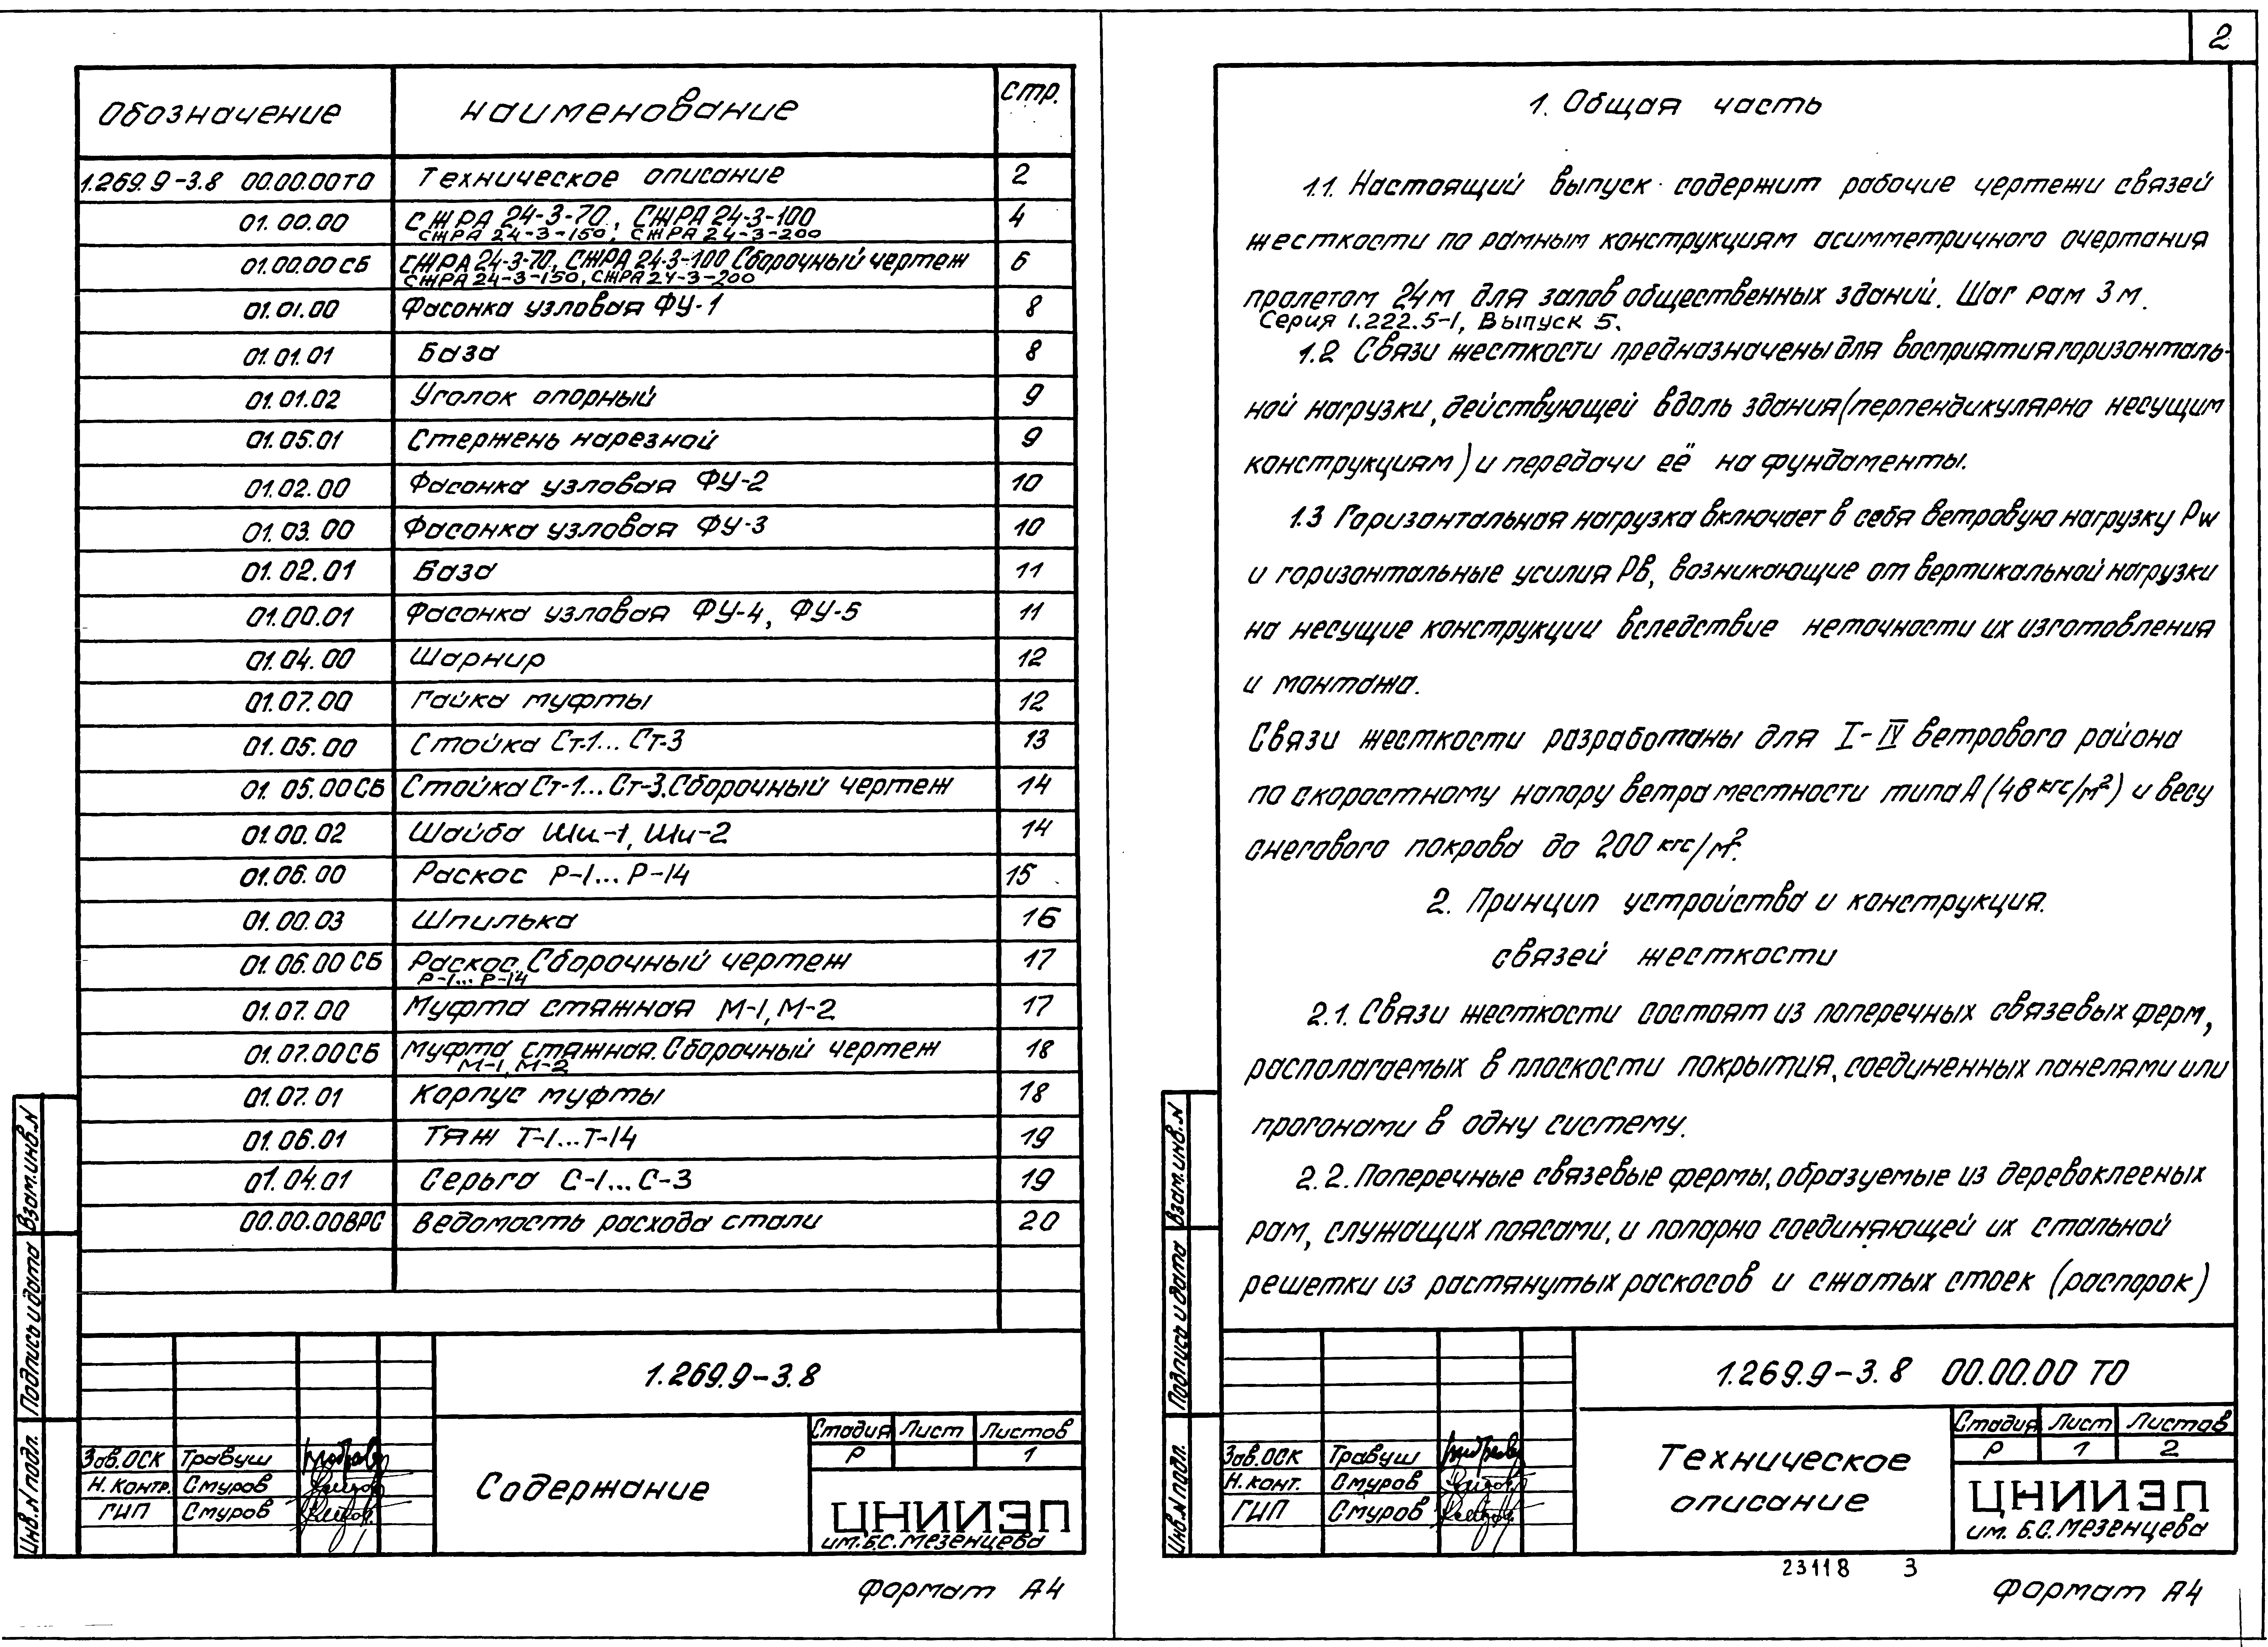 Обозначение наименование стр.
1.269.9-3.8 00.00.00ТО Техническое описание 2
01.00.00 СЖРА 24-3-70, СЖРА 24-3-100 4
СЖРА 24-3-150, СЖРА 24-3-200
01.00.00 СБ СЖРА 24-3-70, СЖРА 24-3-100 Сборочный чертеж 6
СЖРА 24-3-150, СЖРА 24-3-200
01.01.00 Фасонка узловая ФУ-1 8
01.01.01 База 8
01.01.02 Уголок опорный 9
01.05.01 Стержень нарезной 9
01.02.00 Фасонка узловая ФУ-2 10
01.03.00 Фасонка узловая ФУ-3 10
01.02.01 База 11
01.00.01 Фасонка узловая ФУ-4, ФУ-5 11
01.04.00 Шарнир 12
01.07.00 Гайка муфты 12
01.05.00 Стойка Ст-1... Ст-3 13
01.05.00 СБ Стойка Ст-1... Ст-3. Сборочный чертеж 14
01.00.02 Шайба Ши-1, Ши-2 14
01.06.00 Раскос Р-1... Р-14 15
01.00.03 Шпилька 16
01.06.00 СБ Раскос. Сборочный чертеж 17
Р-1... Р-14
01.07.00 Муфта стяжная М-1, М-2 17
01.07.00 СБ Муфта стяжная. Сборочный чертеж 18
М-1, М-2
01.07.01 Корпус муфты 18
01.06.01 Тяж Т-1...Т-14 19
01.04.01 Серьга С-1... С-3 19
00.00.00ВРС Ведомость расхода стали 20
Взам.инв.N
Подпись и дата
Инв.N подл.
1.269.9-3.8
Стадия Лист Листов
Р 1
Зав.ОСК Травуш
Н.контр. Смуров
ГИП Смуров
Содержание
ЦНИИЭП
им. Б.С. Мезенцева
Формат А4
2
1. Общая часть
1.1. Настоящий выпуск содержит рабочие чертежи связей
жесткости по рамным конструкциям асимметричного очертания
пролетом 24м для залов общественных зданий. Шаг рам 3м.
Серия 1.222.5-1, Выпуск 5.
1.2 Связи жесткости предназначены для восприятия горизонталь-
ной нагрузки, действующей вдоль здания (перпендикулярно несущим
конструкциям) и передачи её на фундаменты.
1.3 Горизонтальная нагрузка включает в себя ветровую нагрузку Pw
и горизонтальные усилия Рв, возникающие от вертикальной нагрузки
на несущие конструкции вследствие неточности их изготовления
и монтажа.
Связи жесткости разработаны для I-IV ветрового района
по скоростному напору ветра местности типа А (48 кгс/м²) и весу
снегового покрова до 200 кгс/м².
2. Принцип устройства и конструкция.
связей жесткости
2.1. Связи жесткости состоят из поперечных связевых ферм,
располагаемых в плоскости покрытия, соединенных панелями или
прогонами в одну систему.
2.2. Поперечные связевые фермы, образуемые из деревоклееных
рам, служащих поясами, и попарно соединяющей их стальной
решетки из растянутых раскосов и сжатых стоек (распорок)
Взам.инв.N
Подпись и дата
Инв.N подл.
1.269.9-3.8 00.00.00 ТО
Стадия Лист Листов
Р 1 2
Зав.ОСК Травуш
Н.конт. Смуров
ГИП Смуров
Техническое
описание
ЦНИИЭП
им. Б.С. Мезенцева
23118 3
Формат А4